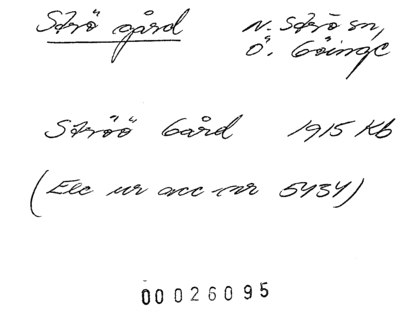 Strö gård N. Strö sn,
Ö. Göinge
Ströö Gård 1915 Kb
(Exc ur acc nr 5434)
00 026095